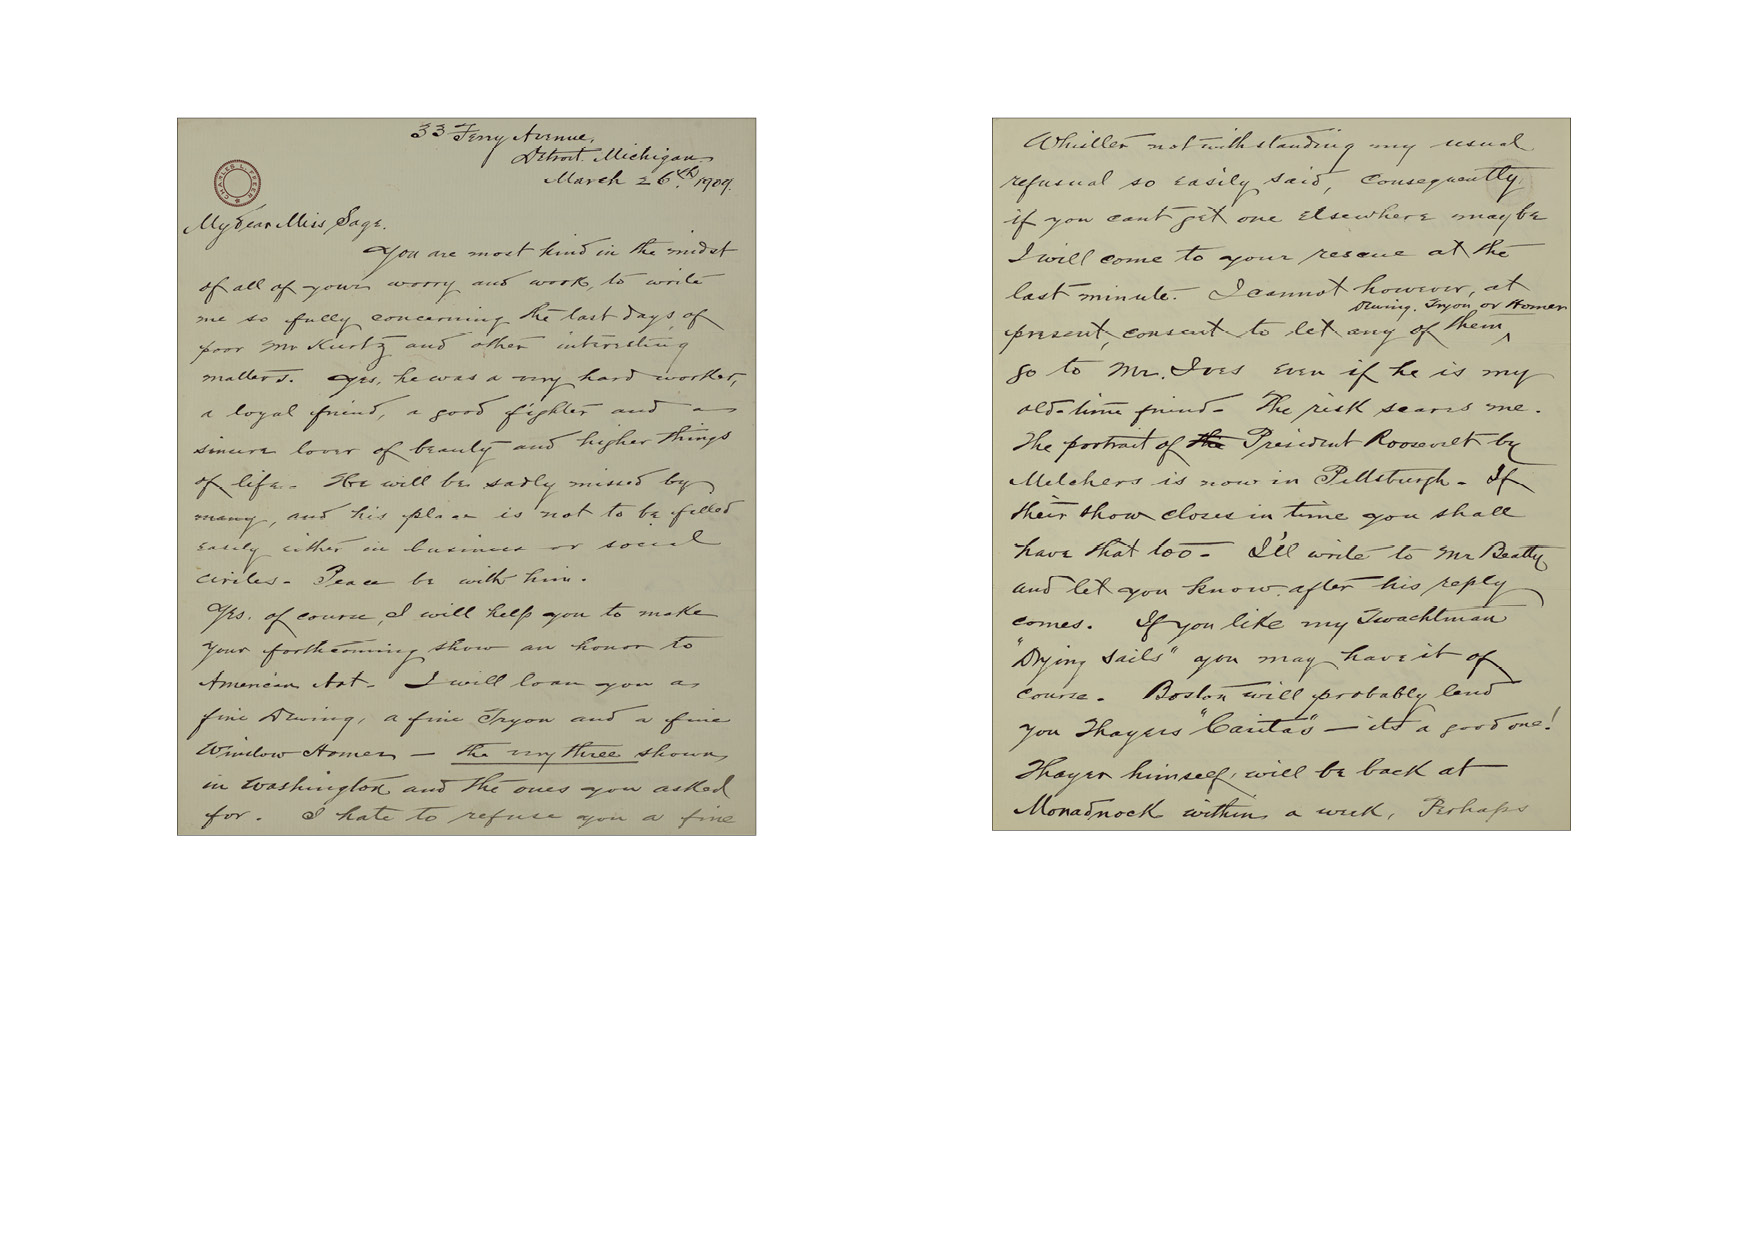 33 Ferry Avenue,
Detroit. Michigan.
March 26th. 1909.
CHARLES L. FREER
My dear Miss Sage.
You are most kind in the midst
of all of your worry and work, to write
me so fully concerning the last days of
poor Mr Kurtz and other interesting
matters. Yes, he was a very hard worker,
a loyal friend, a good fighter and a
sincere lover of beauty and higher things
of life. He will be sadly missed by
many, and his place is not to be filled
easily either in business or social
circles. Peace be with him.
Yes. of course, I will help you to make
your forthcoming show an honor to
American Art. I will loan you a
fine Dewing, a fine Tryon and a fine
Winslow Homer — the very three shown
in Washington and the ones you asked
for. I hate to refuse you a fine
Whistler notwithstanding my usual
refusual so easily said, consequently
if you cant get one elsewhere maybe
I will come to your rescue at the
last minute. I cannot however, at
Dewing. Tryon or Homer
present, consent to let any of them ^
go to Mr. Ives even if he is my
old-time friend - The risk scares me.
The portrait of the President Roosevelt by
Melchers is now in Pittsburgh - If
their show closes in time you shall
have that too - I'll write to Mr Beatty
and let you know after his reply
comes. If you like my Twachtman
"Drying Sails" you may have it of
course. Boston will probably lend
you Thayers "Caritas" — its a good one!
Thayer himself, will be back at
Monadnock within a week, Perhaps